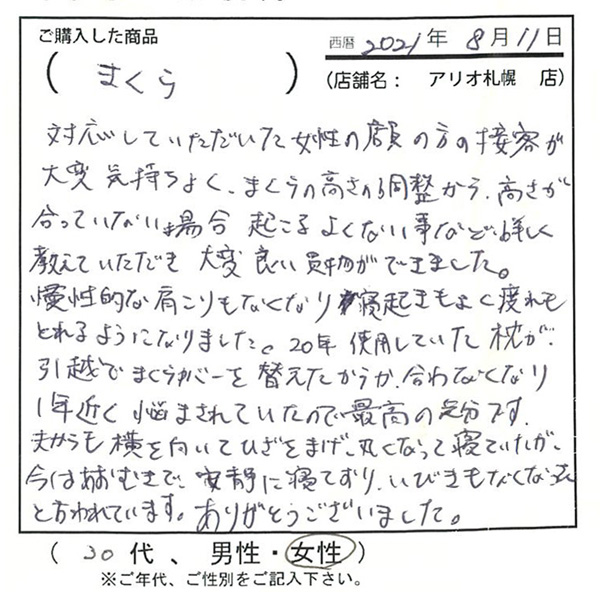 ご購入した商品
西暦 2021年 8月11日
(まくら)
(店舗名: アリオ札幌 店)
対応していただいた女性の店員の方の接客が
大変気持ちよく、まくらの高さの調整から、高さが
合っていない場合起こるよくない事など詳しく
教えていただき大変良い買物ができました。
慢性的な肩こりもなくなり寝起きもよく疲れも
とれるようになりました。20年使用していた枕が、
引越でまくらカバーを替えたからか、合わなくなり
1年近く悩まされていたので最高の気分です。
夫からも横を向いてひざをまげ、丸くなって寝ていたが、
今はあおむきで、安静に寝ており、いびきもなくなった
と言われています。ありがとうございました。
(30代、男性・女性)
※ご年代、ご性別をご記入下さい。